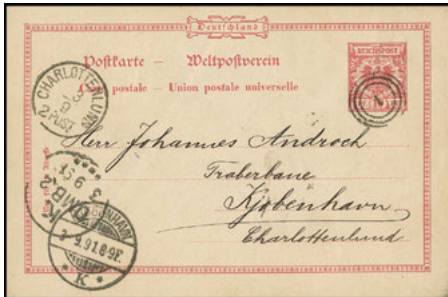 Deutschland
Postkarte — Weltpostverein
Carte postale — Union postale universelle
REICHSPOST
CHARLOTTENLUND
2 POST
1
Herr Johannes Androch
Traberbane
Kjöbenhavn
Charlottenlund
3 9 91
OMB 2
9.91.8-9E.
K